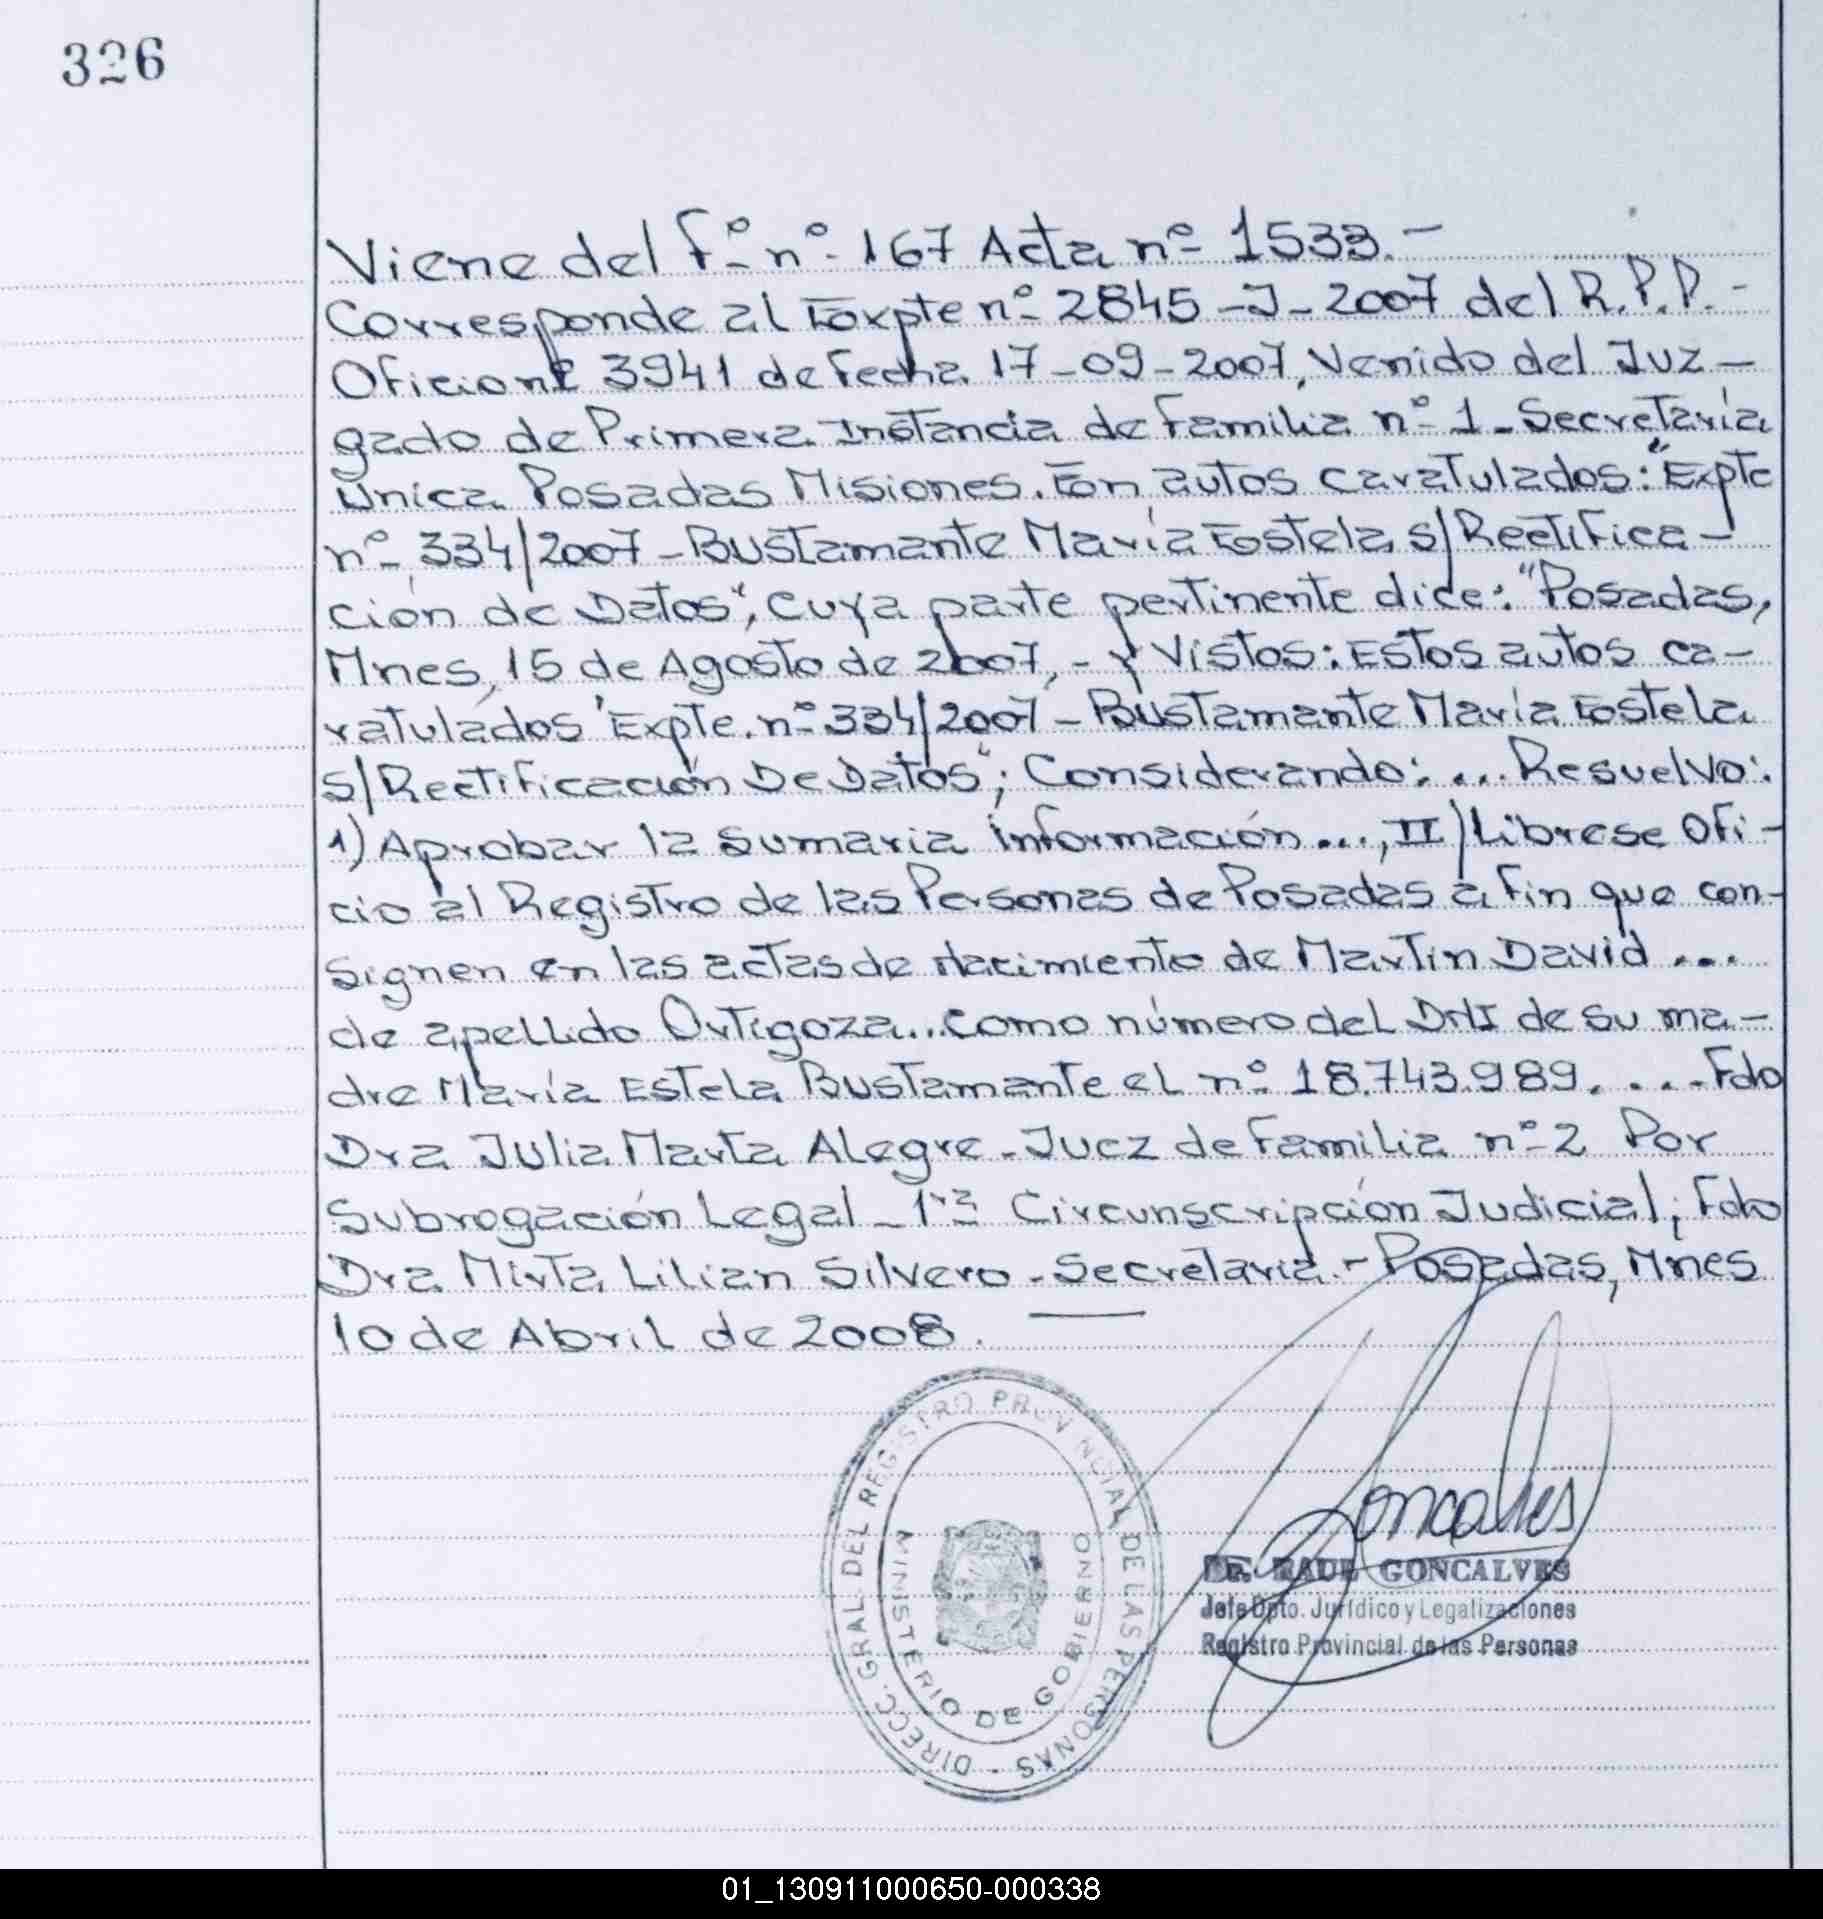 326
Viene del fº nº 167 Acta nº 1533.-
Corresponde al Expte nº 2845-J-2007 del R.P.P.-
Oficio nº 3941 de fecha 17-09-2007, Venido del Juz-
gado de Primera Instancia de Familia nº 1-Secretaría
Única Posadas Misiones. En autos caratulados: "Expte
nº 334/2007-Bustamante María Estela s/Rectifica-
ción de Datos"; cuya parte pertinente dice: "Posadas,
Mnes, 15 de Agosto de 2007,- y Vistos: Estos autos ca-
ratulados "Expte. nº 334/2007-Bustamante María Estela
s/Rectificación De Datos"; Considerando:... Resuelvo:
1) Aprobar la sumaria información..., II) Librese Ofi-
cio al Registro de las Personas de Posadas a fin que con-
signen en las actas de Nacimiento de Martín David ...
de apellido Ortigoza... como número del DNI de su ma-
dre María Estela Bustamante el nº 18.743.989. ...-Fdo
Dra Julia Marta Alegre-Juez de Familia nº 2 Por
Subrogación Legal-1ra Circunscripción Judicial; Fdo
Dra Mirta Lilian Silvero-Secretaria.- Posadas, Mnes
10 de Abril de 2008.
DIRECC. GRAL. DEL REGISTRO PROVINCIAL DE LAS PERSONAS -
MINISTERIO DE GOBIERNO
Goncalves
Dr. RAUL GONCALVES
Jefe Dpto. Jurídico y Legalizaciones
Registro Provincial de las Personas
01_130911000650-000338